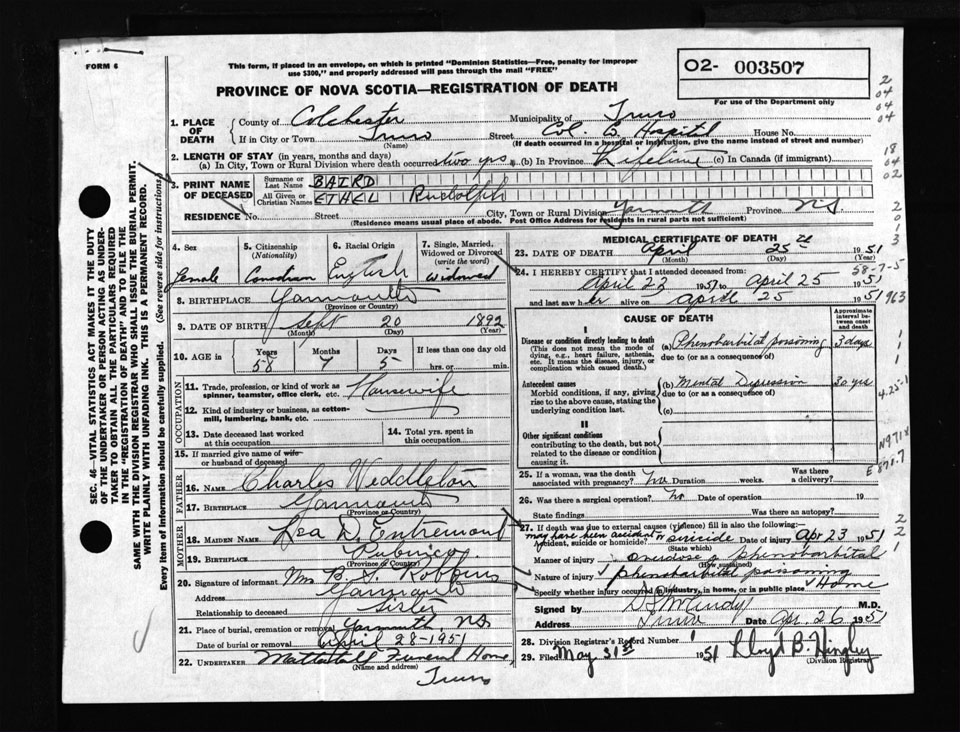 FORM 6
This form, if placed in an envelope, on which is printed "Dominion Statistics—Free, penalty for improper
use $300," and properly addressed will pass through the mail "FREE"
PROVINCE OF NOVA SCOTIA—REGISTRATION OF DEATH
02- 003507
For use of the Department only
1. PLACE OF DEATH
County of Colchester Municipality of Truro
If in City or Town Truro Street Col. Co Hospital House No.
(Name) (If death occurred in a hospital or institution, give the name instead of street and number)
2. LENGTH OF STAY (in years, months and days)
(a) In City, Town or Rural Division where death occurred two yrs (b) In Province Lifetime (c) In Canada (if immigrant)
3. PRINT NAME OF DECEASED
Surname or Last Name BAIRD
All Given or Christian Names ETHEL Rudolph
RESIDENCE No. Street City, Town or Rural Division Yarmouth Province N.S.
(Residence means usual place of abode. Post Office Address for residents in rural parts not sufficient)
4. Sex
female
5. Citizenship
(Nationality)
Canadian
6. Racial Origin
English
7. Single, Married,
Widowed or Divorced
(write the word)
widowed
8. BIRTHPLACE Yarmouth
(Province or Country)
9. DATE OF BIRTH Sept 20 1892
(Month) (Day) (Year)
10. AGE in
Years Months Days If less than one day old
58 7 5 hrs. or min.
OCCUPATION
11. Trade, profession, or kind of work as
spinner, teamster, office clerk, etc. Housewife
12. Kind of industry or business, as cotton-
mill, lumbering, bank, etc.
13. Date deceased last worked
at this occupation
14. Total yrs. spent in
this occupation
15. If married give name of wife
or husband of deceased
FATHER
16. NAME Charles Weddleton
17. BIRTHPLACE Yarmouth
(Province or Country)
MOTHER
18. MAIDEN NAME Lea D. Entremont
19. BIRTHPLACE Pubnico
(Province or Country)
20. Signature of informant Mrs B. S. Robbins
Address Yarmouth
Relationship to deceased Sister
21. Place of burial, cremation or removal Yarmouth NS
Date of burial or removal April 28-1951
22. UNDERTAKER Mattatall Funeral Home
(Name and address)
Truro
MEDICAL CERTIFICATE OF DEATH
23. DATE OF DEATH April 25th 1951
(Month) (Day) (Year)
24. I HEREBY CERTIFY that I attended deceased from
April 23 1951 to April 25 1951
and last saw her alive on April 25 1951
CAUSE OF DEATH
Approximate
interval between
onset
and death
I
Disease or condition directly leading to death
(This does not mean the mode of
dying, e.g., heart failure, asthenia,
etc. It means the disease, injury, or
complication which caused death.)
(a) Phenobarbital poisoning 3 days
due to (or as a consequence of)
Antecedent causes
Morbid conditions, if any, giving
rise to the above cause, stating the
underlying condition last.
(b) Mental Depression 30 yrs
due to (or as a consequence of)
(c)
II
Other significant conditions
contributing to the death, but not
related to the disease or condition
causing it.
25. If a woman, was the death
associated with pregnancy? no Duration weeks. Was there
a delivery?
26. Was there a surgical operation? No Date of operation 19
State findings Was there an autopsy?
27. If death was due to external causes (violence) fill in also the following:—
may have been accident or suicide
Accident, suicide or homicide? Date of injury Apr 23 1951
(State which)
Manner of injury overdose of phenobarbital
(How sustained)
Nature of injury phenobarbital poisoning
Specify whether injury occurred in industry, in home, or in public place Home
Signed by M.D.
Address Truro Date Apr. 26 1951
28. Division Registrar's Record Number 1
29. Filed May 31st 1951 Lloyd B. Hingley
(Division Registrar)
2
04
04
04
18
04
02
2
0
1
3
58-7-5
963
1
1
1
4-25-1
N971
E870.7
2
2
SEC. 46—VITAL STATISTICS ACT MAKES IT THE DUTY
OF THE UNDERTAKER OR PERSON ACTING AS UNDER-
TAKER TO OBTAIN ALL THE PARTICULARS REQUIRED
IN THE "REGISTRATION OF DEATH" AND TO FILE THE
SAME WITH THE DIVISION REGISTRAR WHO SHALL ISSUE THE BURIAL PERMIT.
WRITE PLAINLY WITH UNFADING INK. THIS IS A PERMANENT RECORD.
Every item of Information should be carefully supplied. (See reverse side for instructions.)